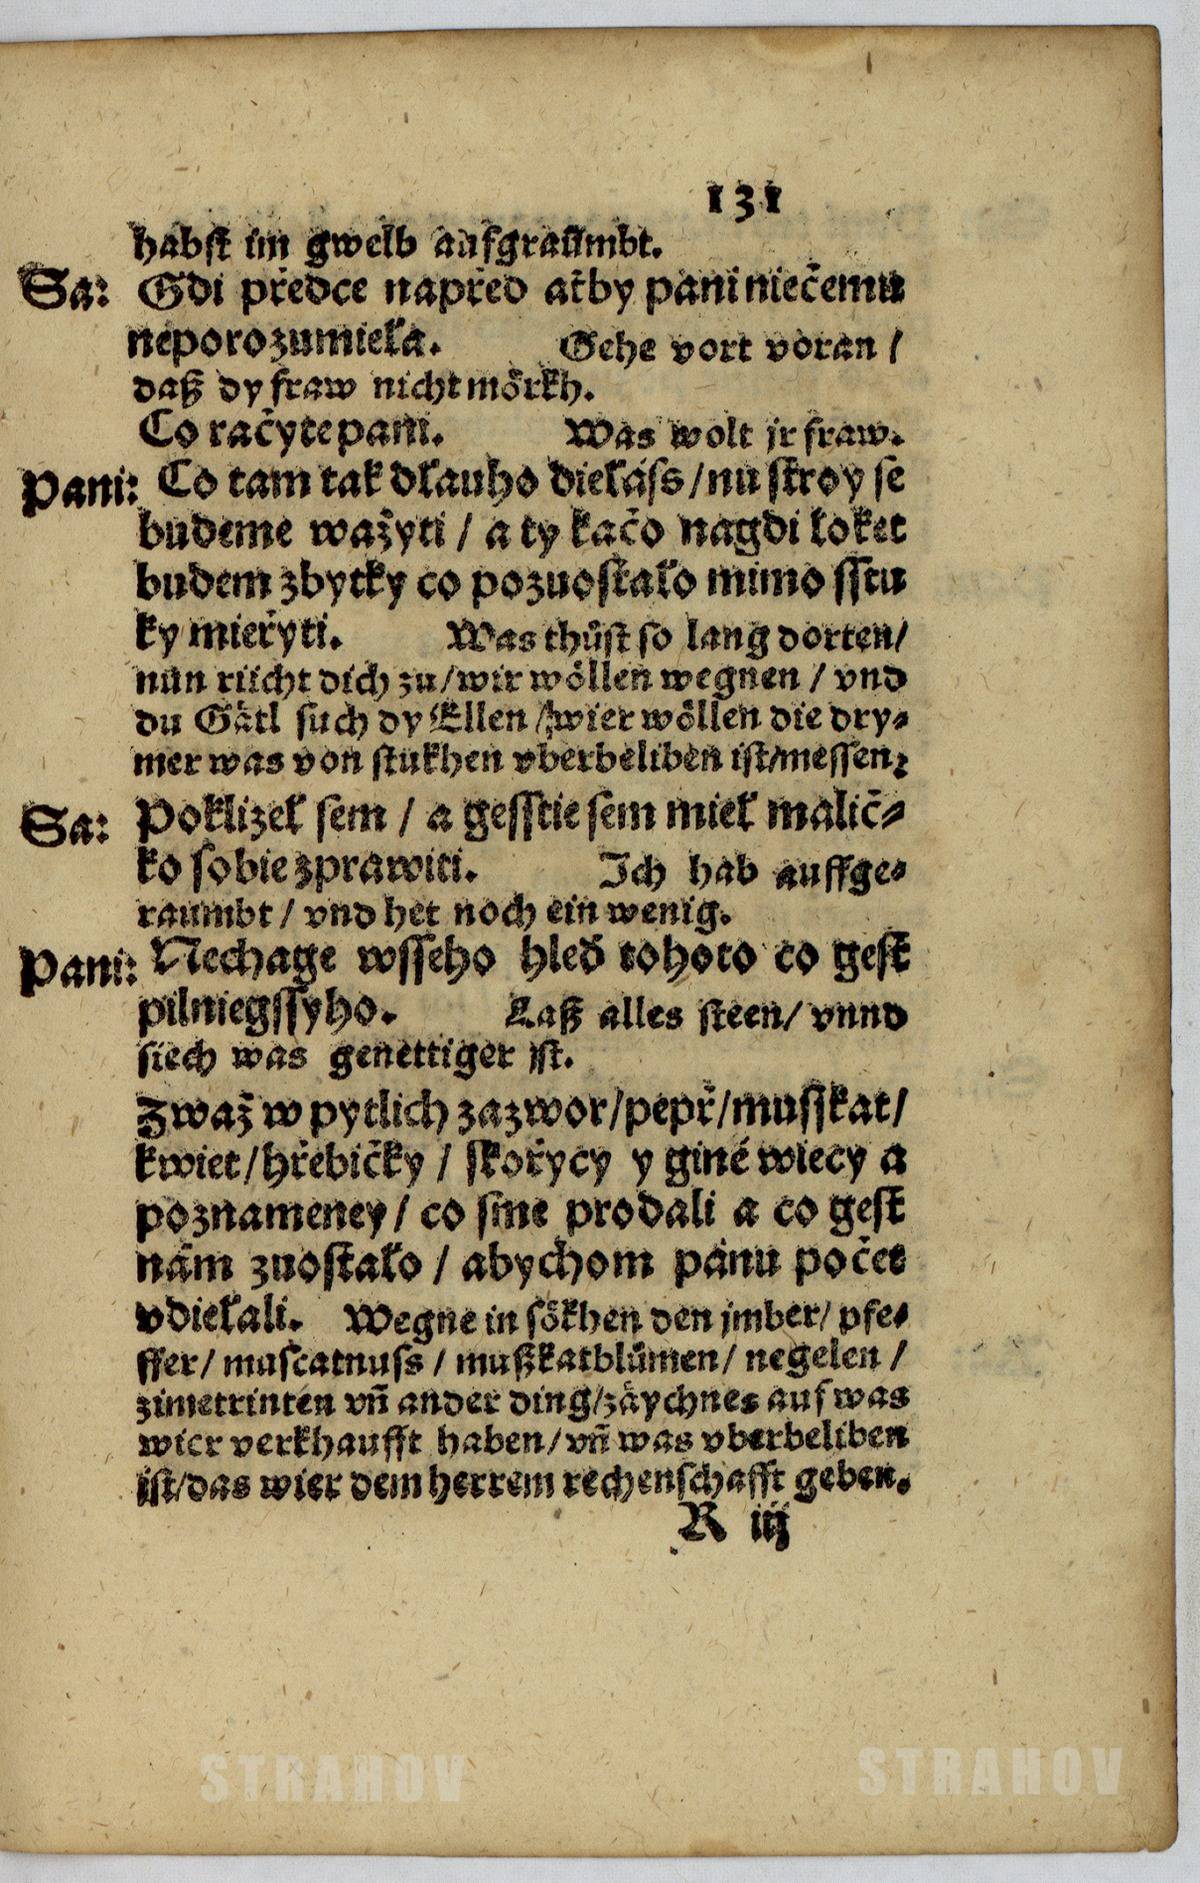 131
habſt im gwelb aufgraůmbt.
Sa: Gdi předce napřed ať by pani niečemu
neporozumieła. Gehe vort voran /
daß dy fraw nicht mörkh.
Co račyte pani. Was wolt jr fraw.
Pani: Co tam tak dłauho diełáſs / nu ſtroy ſe
budeme wažyti / a ty kačo nagdi łoket
budem zbytky co pozuoſtało mimo ſſtu
ky mieřyti. Was thůſt ſo lang dorten /
nůn rücht dich zu / wir wöllen wegnen / vnd
du Gätl ſuch dy Ellen / wier wöllen die dry⸗
mer was von ſtukhen vberbeliben iſt / meſſen.
Sa: Poklizeł ſem / a geſſtie ſem mieł malič⸗
ko ſobie zprawiti. Ich hab auffge⸗
raumbt / vnd het noch ein wenig.
Pani: Nechage wſſeho hleď tohoto co geſt
pilniegſſyho. Laß alles ſteen / vnnd
ſiech was genettiger jſt.
Zwaž w pytlich zazwor / pepř / muſſkat /
kwiet / hřebičky / ſkořycy y giné wiecy a
poznameney / co ſme prodali a co geſt
nám zuoſtało / abychom pánu počet
vdiełali. Wegne in ſökhen den jmber / pfe⸗
ffer / muſcatnuſs / mußkatblůmen / negelen /
zimetrinten vñ ander ding / zäychnes auf was
wier verkhaufft haben / vñ was vberbeliben
iſt / das wier dem herrem rechenſchafft geben.
R iij
STRAHOV STRAHOV